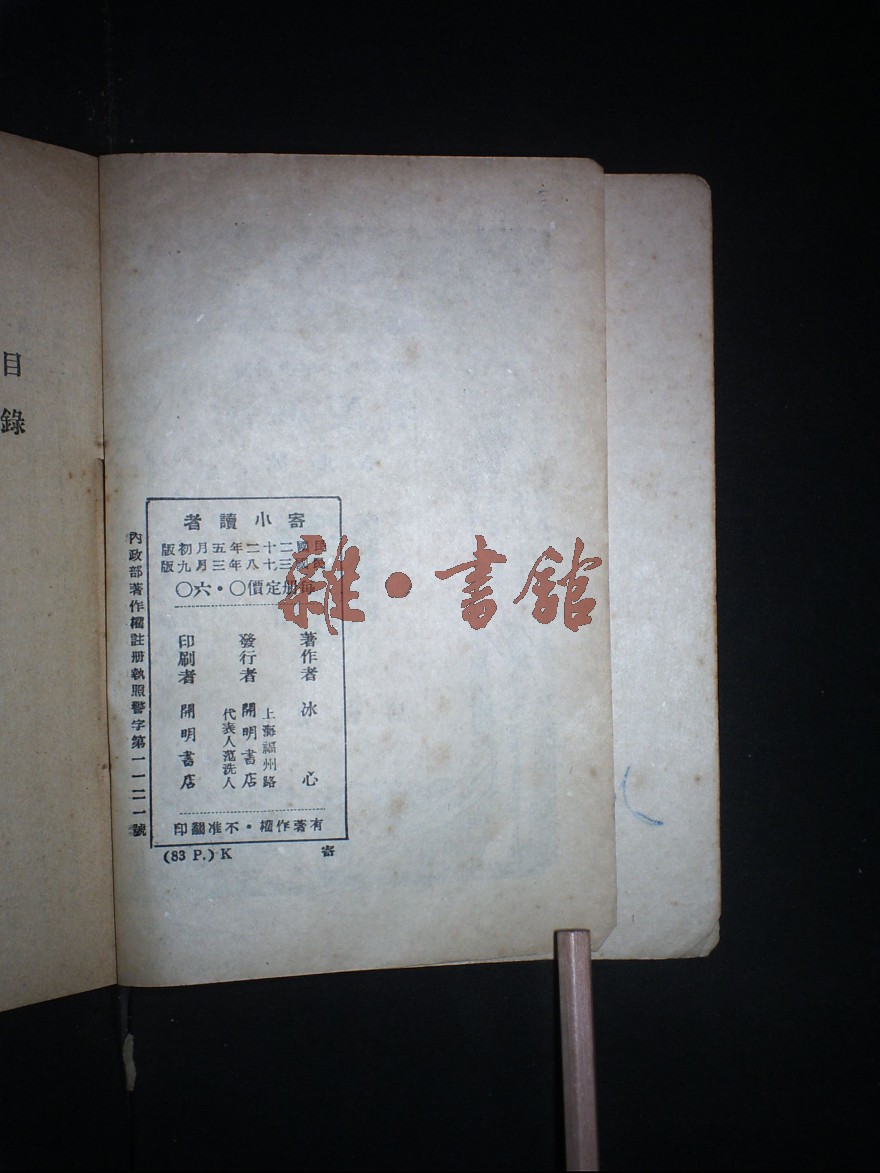 目錄
寄小讀者
民國二十二年五月初版
民國三十八年三月九版
每册定價〇・六〇
著作者 冰心
發行者 開明書店
上海福州路
代表人范洗人
印刷者 開明書店
有著作權・不准翻印
內政部著作權註册執照警字第一一二一號
(83 P.) K
寄
雜・書館